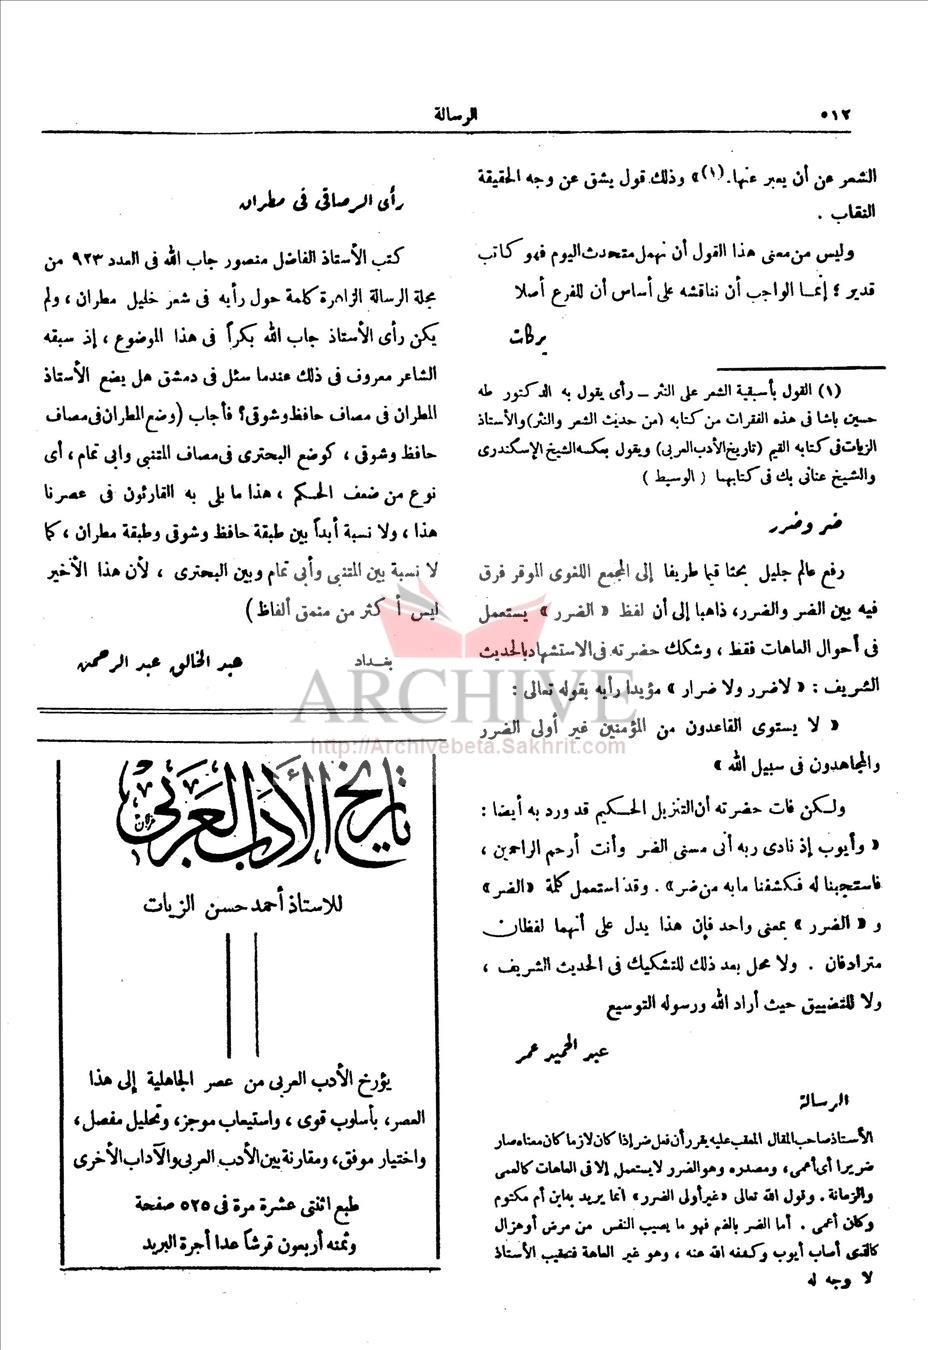 ٥١٢
الرسالة
الشعر عن أن يعبر عنها.(١)» وذلك قول يشق عن وجه الحقيقة
النقاب .
وليس من معنى هذا القول أن نهمل متحدث اليوم فهو كاتب
قدير ؛ إنما الواجب أن نناقشه على أساس أن للفرع أصلا
بركات
(١) القول بأسبقية الشعر على النثر ــ رأى يقول به الدكتور طه
حسين باشا فى هذه الفقرات من كتابه (من حديث الشعر والنثر) والأستاذ
الزيات فى كتابه القيم (تاريخ الأدب العربى) ويقول بعكسه الشيخ الإسكندرى
والشيخ عنانى بك فى كتابهما ( الوسيط )
ضر وضرر
رفع عالم جليل بحثا قيما طريفا إلى المجمع اللغوى الموقر فرق
فيه بين الضر والضرر، ذاهبا إلى أن لفظ « الضرر » يستعمل
فى أحوال العاهات فقط ، وشكك حضرته فى الاستشهاد بالحديث
الشريف : « لاضرر ولا ضرار » مؤيدا رأيه بقوله تعالى :
« لا يستوى القاعدون من المؤمنين غير أولى الضرر
والمجاهدون فى سبيل الله »
ولكن فات حضرته أن التنزيل الحكيم قد ورد به أيضا :
« وأيوب إذ نادى ربه أنى مسنى الضر وأنت أرحم الراحمين ،
فاستجبنا له فكشفنا مابه من ضر» . وقد استعمل كلمة «الضر»
و « الضرر » بمعنى واحد فإن هذا يدل على أنهما لفظان
مترادفان . ولا محل بعد ذلك للتشكيك فى الحديث الشريف ،
ولا للتضييق حيث أراد الله ورسوله التوسيع
عبد الحميد عمر
الرسالة
الأستاذ صاحب المقال المعقب عليه يقرر أن فعل ضر إذا كان لازما كان معناه صار
ضريرا أى أعمى، ومصدره وهو الضرر لا يستعمل إلا فى العاهات كالعمى
والزمانة . وقول الله تعالى «غير أولى الضرر» انما يريد به ابن أم مكتوم
وكان أعمى . أما الضر بالضم فهو ما يصيب النفس من مرض أو هزال
كالذى أصاب أيوب وكشفه الله عنه ، وهو غير العاهة فتعقيب الأستاذ
لا وجه له
رأى الرصافى فى مطران
كتب الأستاذ الفاضل منصور جاب الله فى العدد ٩٢٣ من
مجلة الرسالة الزاهرة كلمة حول رأيه فى شعر خليل مطران ، ولم
يكن رأى الأستاذ جاب الله بكراً فى هذا الموضوع ، إذ سبقه
الشاعر معروف فى ذلك عندما سئل فى دمشق هل يضع الأستاذ
المطران فى مصاف حافظ وشوقى؟ فأجاب (وضع المطران فى مصاف
حافظ وشوقى ، كوضع البحترى فى مصاف المتنبى وابى تمام ، أى
نوع من ضعف الحكم ، هذا ما بلى به القارئون فى عصرنا
هذا ، ولا نسبة أبداً بين طبقة حافظ وشوقى وطبقة مطران ، كما
لا نسبة بين المتنبى وأبى تمام وبين البحترى ، لأن هذا الأخير
ليس أكثر من منمق ألفاظ )
بغداد
عبد الخالق عبد الرحمن
تاريخ الأدب العربى
للاستاذ أحمد حسن الزيات
يؤرخ الأدب العربى من عصر الجاهلية إلى هذا
العصر، بأسلوب قوى ، واستيعاب موجز، وتحليل مفصل،
واختيار موفق، ومقارنة بين الأدب العربى والآداب الأخرى
طبع اثنتى عشرة مرة فى ٥٢٥ صفحة
وثمنه أربعون قرشا عدا أجرة البريد
ARCHIVE
http://Archivebeta.Sakhrit.com